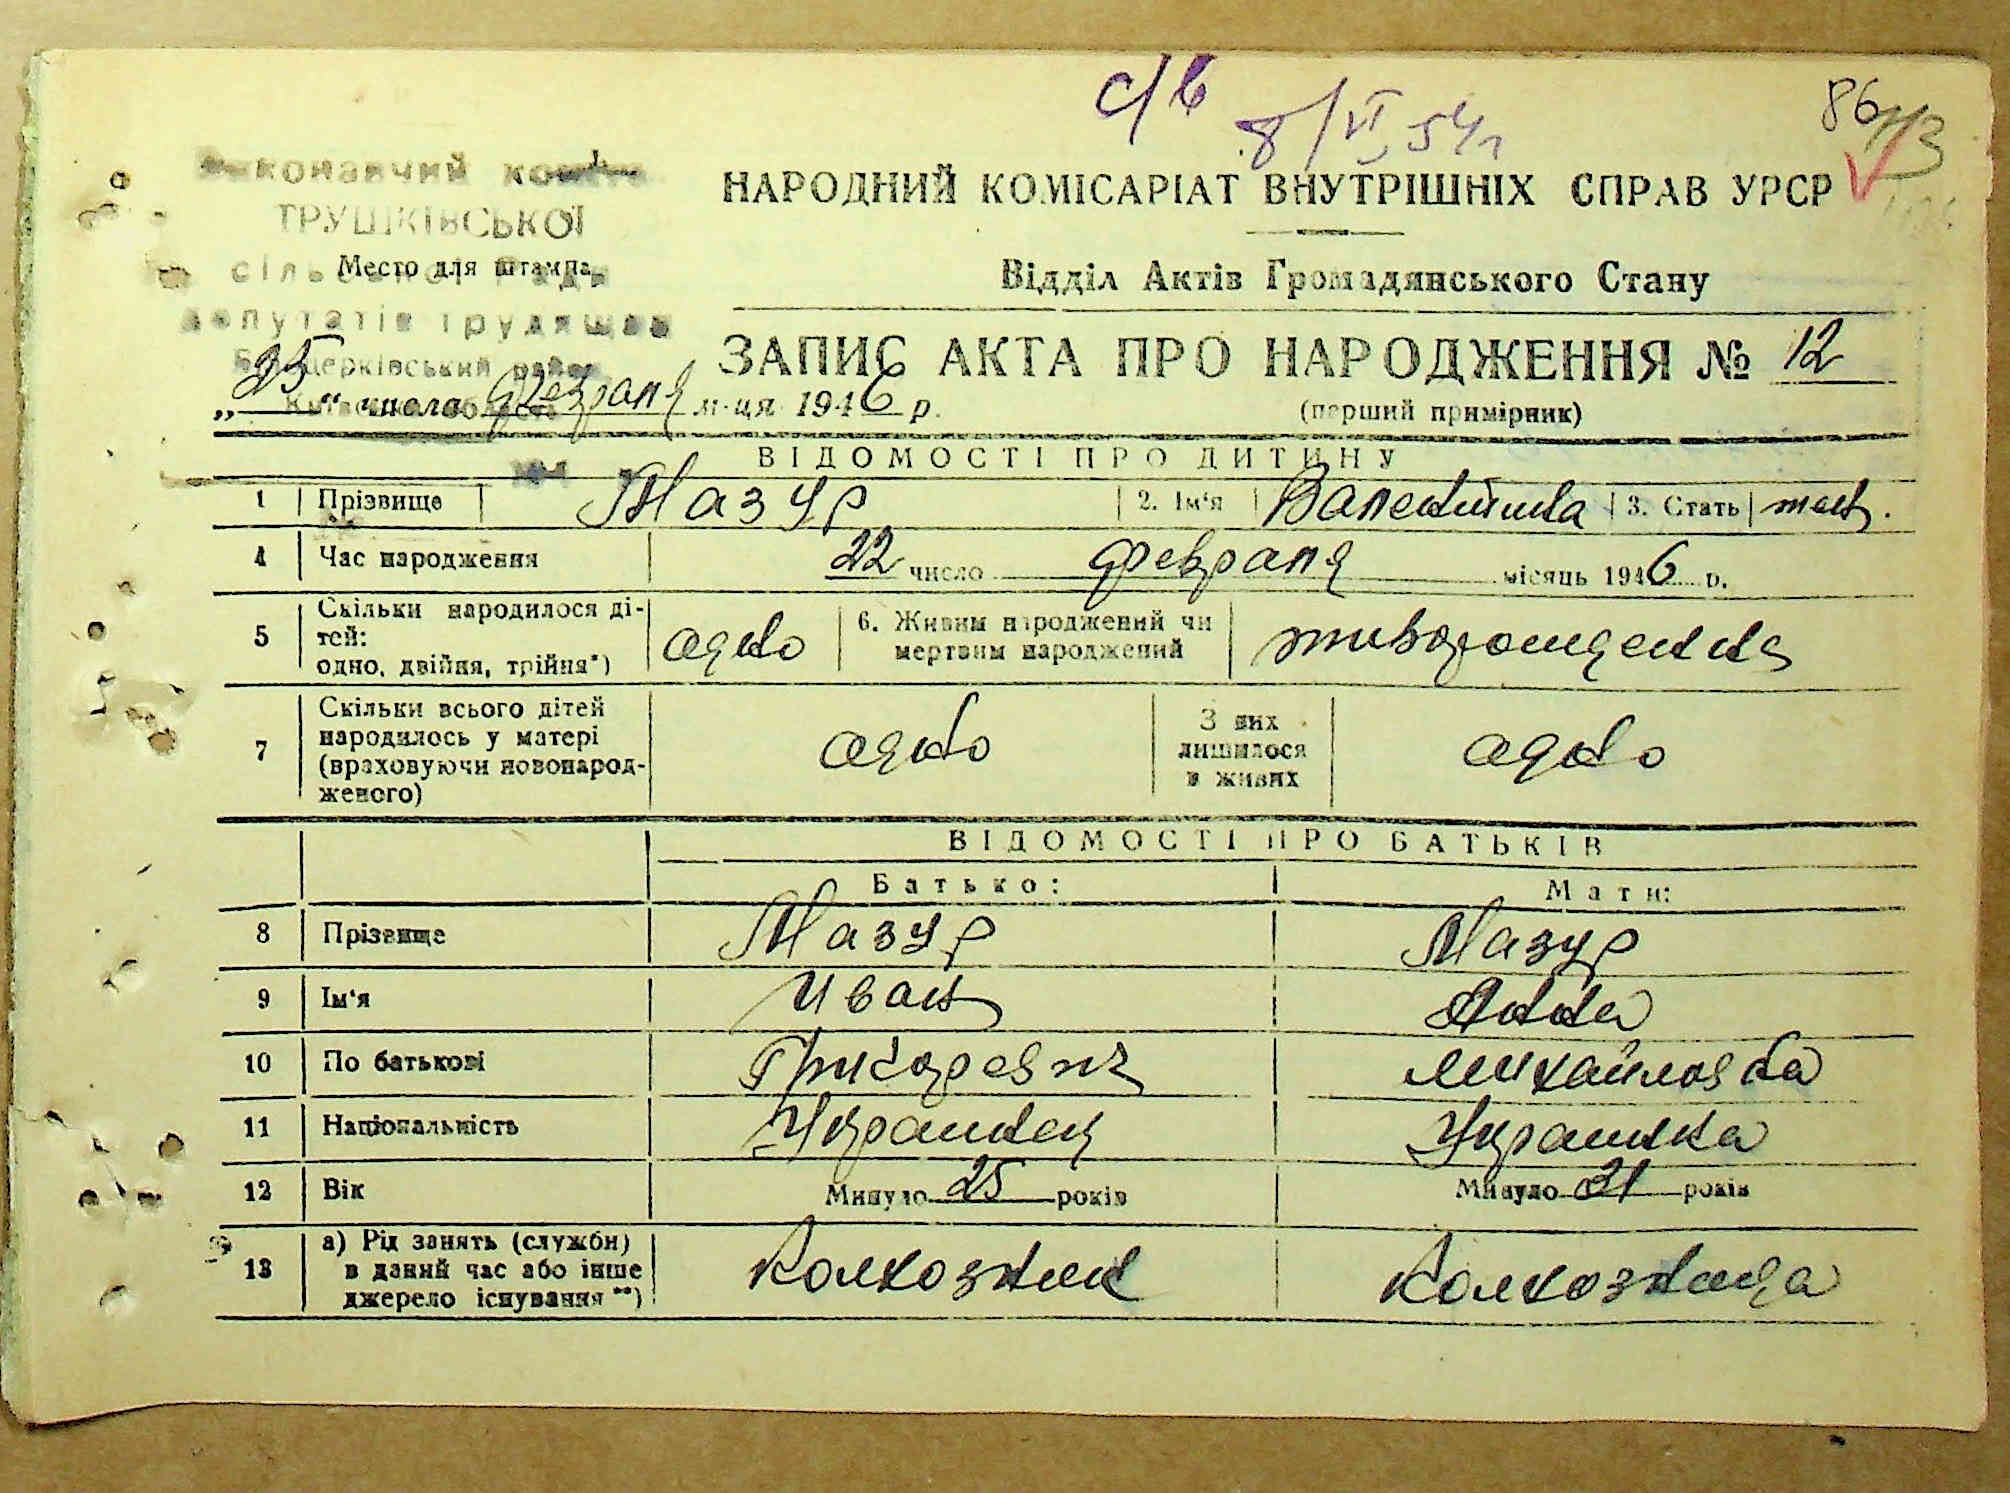 с/в 8/VI 54г
86
Виконавчий комітет
ТРУШКІВСЬКОЇ
сільської Ради
Место для штампа
депутатів трудящих
Білоцерківський район
НАРОДНИЙ КОМІСАРІАТ ВНУТРІШНІХ СПРАВ УРСР
Відділ Актів Громадянського Стану
ЗАПИС АКТА ПРО НАРОДЖЕННЯ № 12
(перший примірник)
„25“ числа февраля м-ця 1946 р.
ВІДОМОСТІ ПРО ДИТИНУ
1 Прізвище Мазур 2. Ім‘я Валентина 3. Стать жен.
4 Час народження 22 число февраля місяць 1946 р.
5 Скільки народилося ді-
тей:
одно, двійня, трійня*) одно 6. Живим народжений чи
мертвим народжений живорожденная
7 Скільки всього дітей
народилось у матері
(враховуючи новонарод-
женого) одно З них
лишилося
в живих одно
ВІДОМОСТІ ПРО БАТЬКІВ
Батько: Мати:
8 Прізвище Мазур Мазур
9 Ім‘я Иван Анна
10 По батькові Григоревич Михайловна
11 Національність Украинец Украинка
12 Вік Минуло 25 років Минуло 21 років
13 а) Рід занять (служби)
в даний час або інше
джерело існування **) Колхозник Колхозница